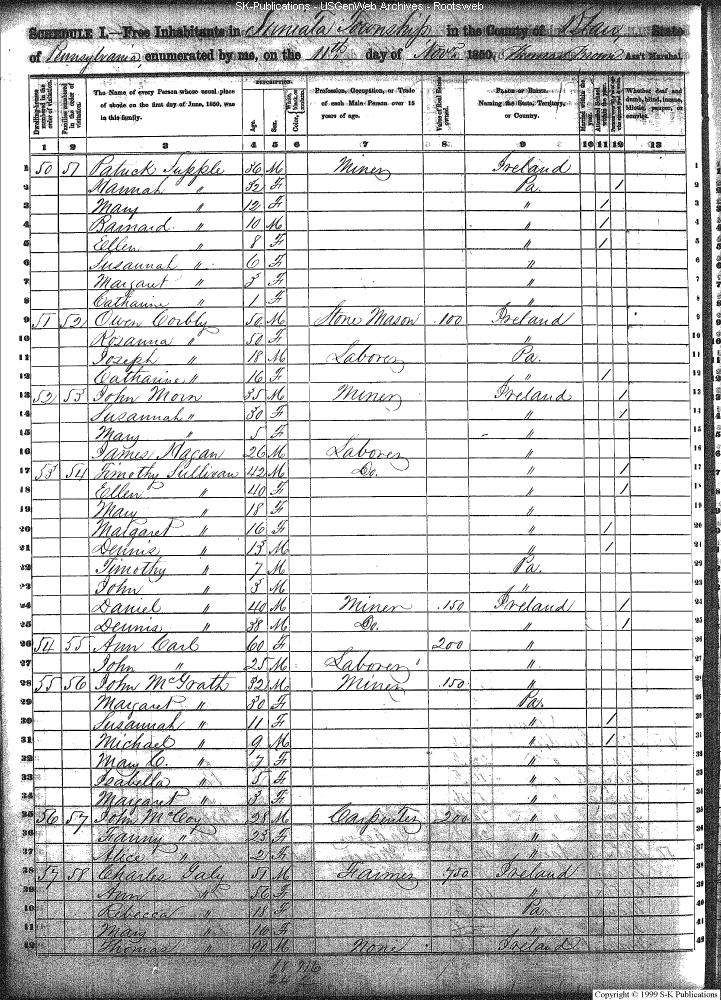 SK-Publications - USGenWeb Archives - Rootsweb
SCHEDULE I.—Free Inhabitants in Juniata Township in the County of Blair State
of Pennsylvania enumerated by me, on the 11th day of Novr 1850. Thomas Ass't Marshal.
DESCRIPTION.
Dwelling-houses numbered in the order of visitation. Families numbered in the order of visitation. The Name of every Person whose usual place of abode on the first day of June, 1850, was in this family. Age. Sex. Color, White, black, or mulatto. Profession, Occupation, or Trade of each Male Person over 15 years of age. Value of Real Estate owned. PLACE OF BIRTH. Naming the State, Territory, or Country. Married within the year. Attended School within the year. Whether deaf and dumb, blind, insane, idiotic, pauper, or convict.
1 2 3 4 5 6 7 8 9 10 11 12 13
1 50 51 Patrick Supple 36 M Miner Ireland 1
2 Hannah " 32 F Pa. / 2
3 Mary " 12 F " / 3
4 Barnard " 10 M " / 4
5 Ellen " 8 F " / 5
6 Susannah " 6 F " 6
7 Margaret " 3 F " 7
8 Catharine " 1 F " 8
9 51 52 Owen Corbly 50 M Stone Mason 100 Ireland 9
10 Rosanna " 50 F " 10
11 Joseph " 18 M Laborer Pa. 11
12 Catharine " 16 F " / 12
13 52 53 John Morn 35 M Miner Ireland / 13
14 Susannah " 30 F " / 14
15 Mary " 5 F " 15
16 James Magan 26 M Laborer " 16
17 53 54 Timothy Sullivan 42 M Do. " / 17
18 Ellen " 40 F " / 18
19 Mary " 18 F " 19
20 Margaret " 16 F " / 20
21 Dennis " 13 M " / 21
22 Timothy " 7 M Pa. 22
23 John " 3 M " 23
24 Daniel " 40 M Miner 150 Ireland / 24
25 Dennis " 38 M Do. " / 25
26 54 55 Ann Carl 60 F 200 " 26
27 John " 25 M Laborer " 27
28 55 56 John McGrath 32 M Miner 150 " 28
29 Margaret " 30 F Pa. 29
30 Susannah " 11 F " / 30
31 Michael " 9 M " / 31
32 Mary C. " 7 F " 32
33 Isabella " 5 F " 33
34 Margaret " 3 F " 34
35 56 57 John McCoy 28 M Carpenter 200 " 35
36 Fanny " 23 F " 36
37 Alice " 2 F " 37
38 57 58 Charles Galy 51 M Farmer 750 Ireland 38
39 Ann " 56 F " 39
40 Rebecca " 18 F Pa. 40
41 Mary " 10 F " 41
42 Thomas " 90 M None Ireland 42
Copyright © 1999 S-K Publications